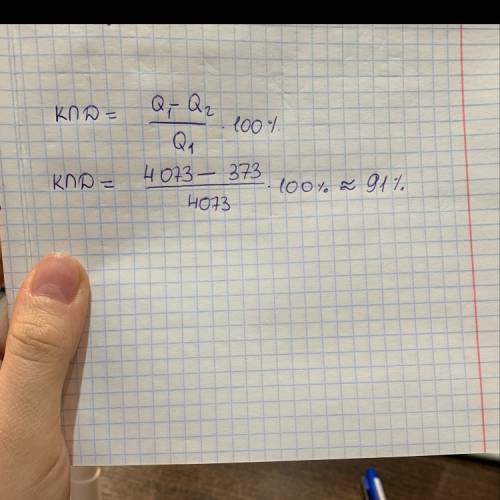 КПД = (Q₁ - Q₂) / Q₁ · 100%
КПД = (4073 - 373) / 4073 · 100% ≈ 91%